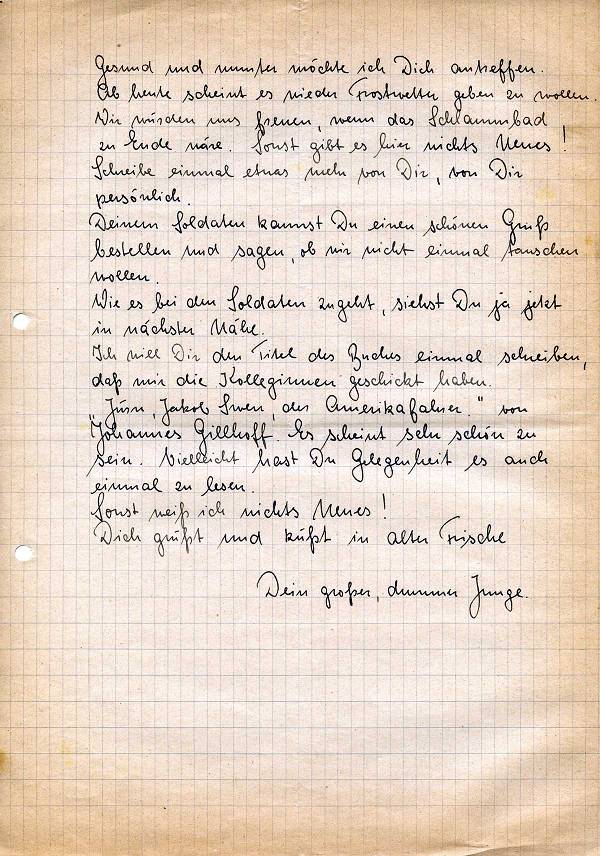 Gesund und munter möchte ich Dich antreffen.
Ab heute scheint es wieder Frostwetter geben zu wollen.
Wir würden uns freuen, wenn das Schlammbad
zu Ende wäre. Sonst gibt es hier nichts Neues!
Schreibe einmal etwas mehr von Dir, von Dir
persönlich.
Deinem Soldaten kannst Du einen schönen Gruß
bestellen und sagen, ob wir nicht einmal tauschen
wollen.
Wie es bei den Soldaten zugeht, siehst Du ja jetzt
in nächster Nähe.
Ich will Dir den Titel des Buches einmal schreiben,
daß mir die Kolleginnen geschickt haben.
„Jürn, Jakob Swen, der Amerikafahrer." von
Johannes Gillhoff. Es scheint sehr schön zu
sein. Vielleicht hast Du Gelegenheit es auch
einmal zu lesen.
Sonst weiß ich nichts Neues!
Dich grüßt und küßt in alter Frische
Dein großer, dummer Junge.